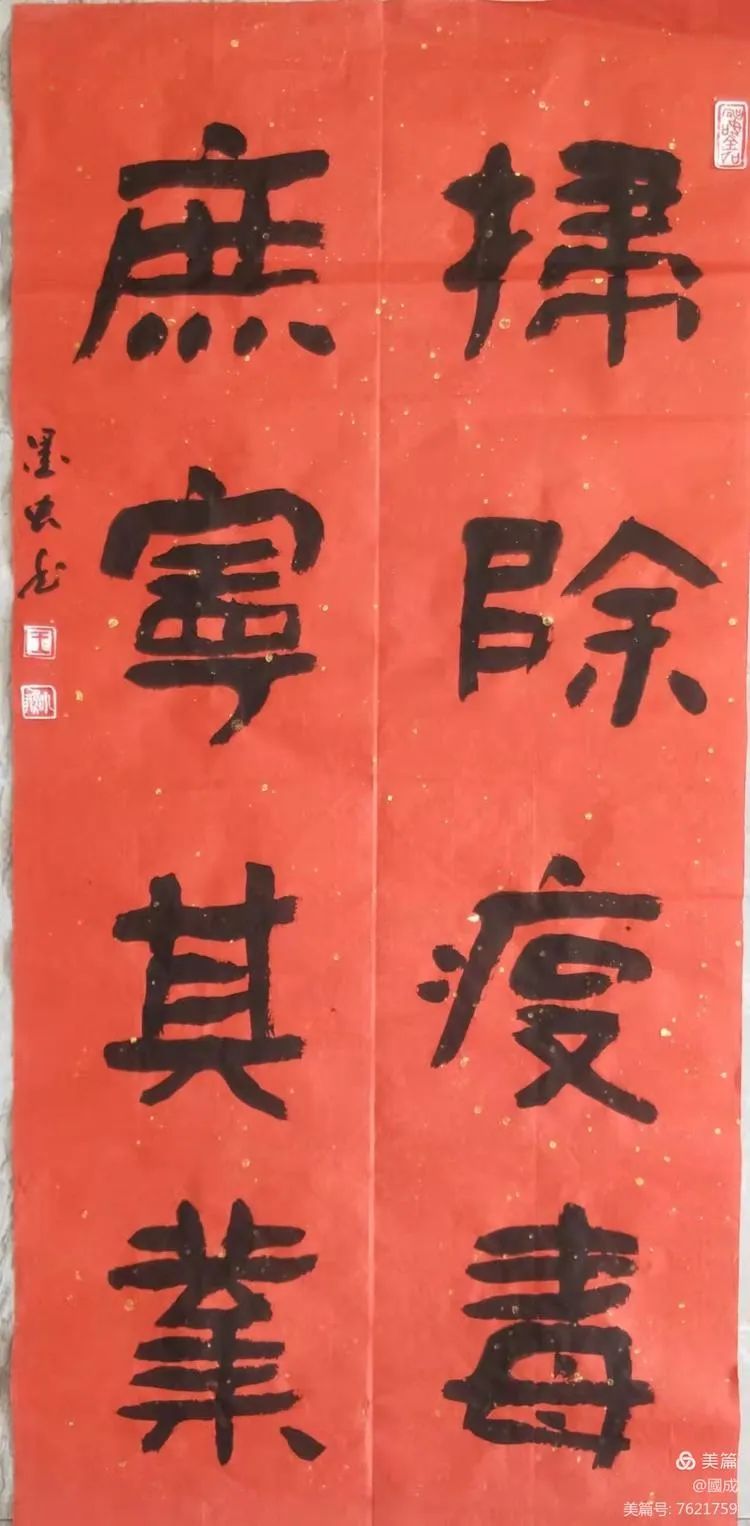 掃除疫毒
庶寧其業
墨
王
美篇
@國成
美篇号: 7621759